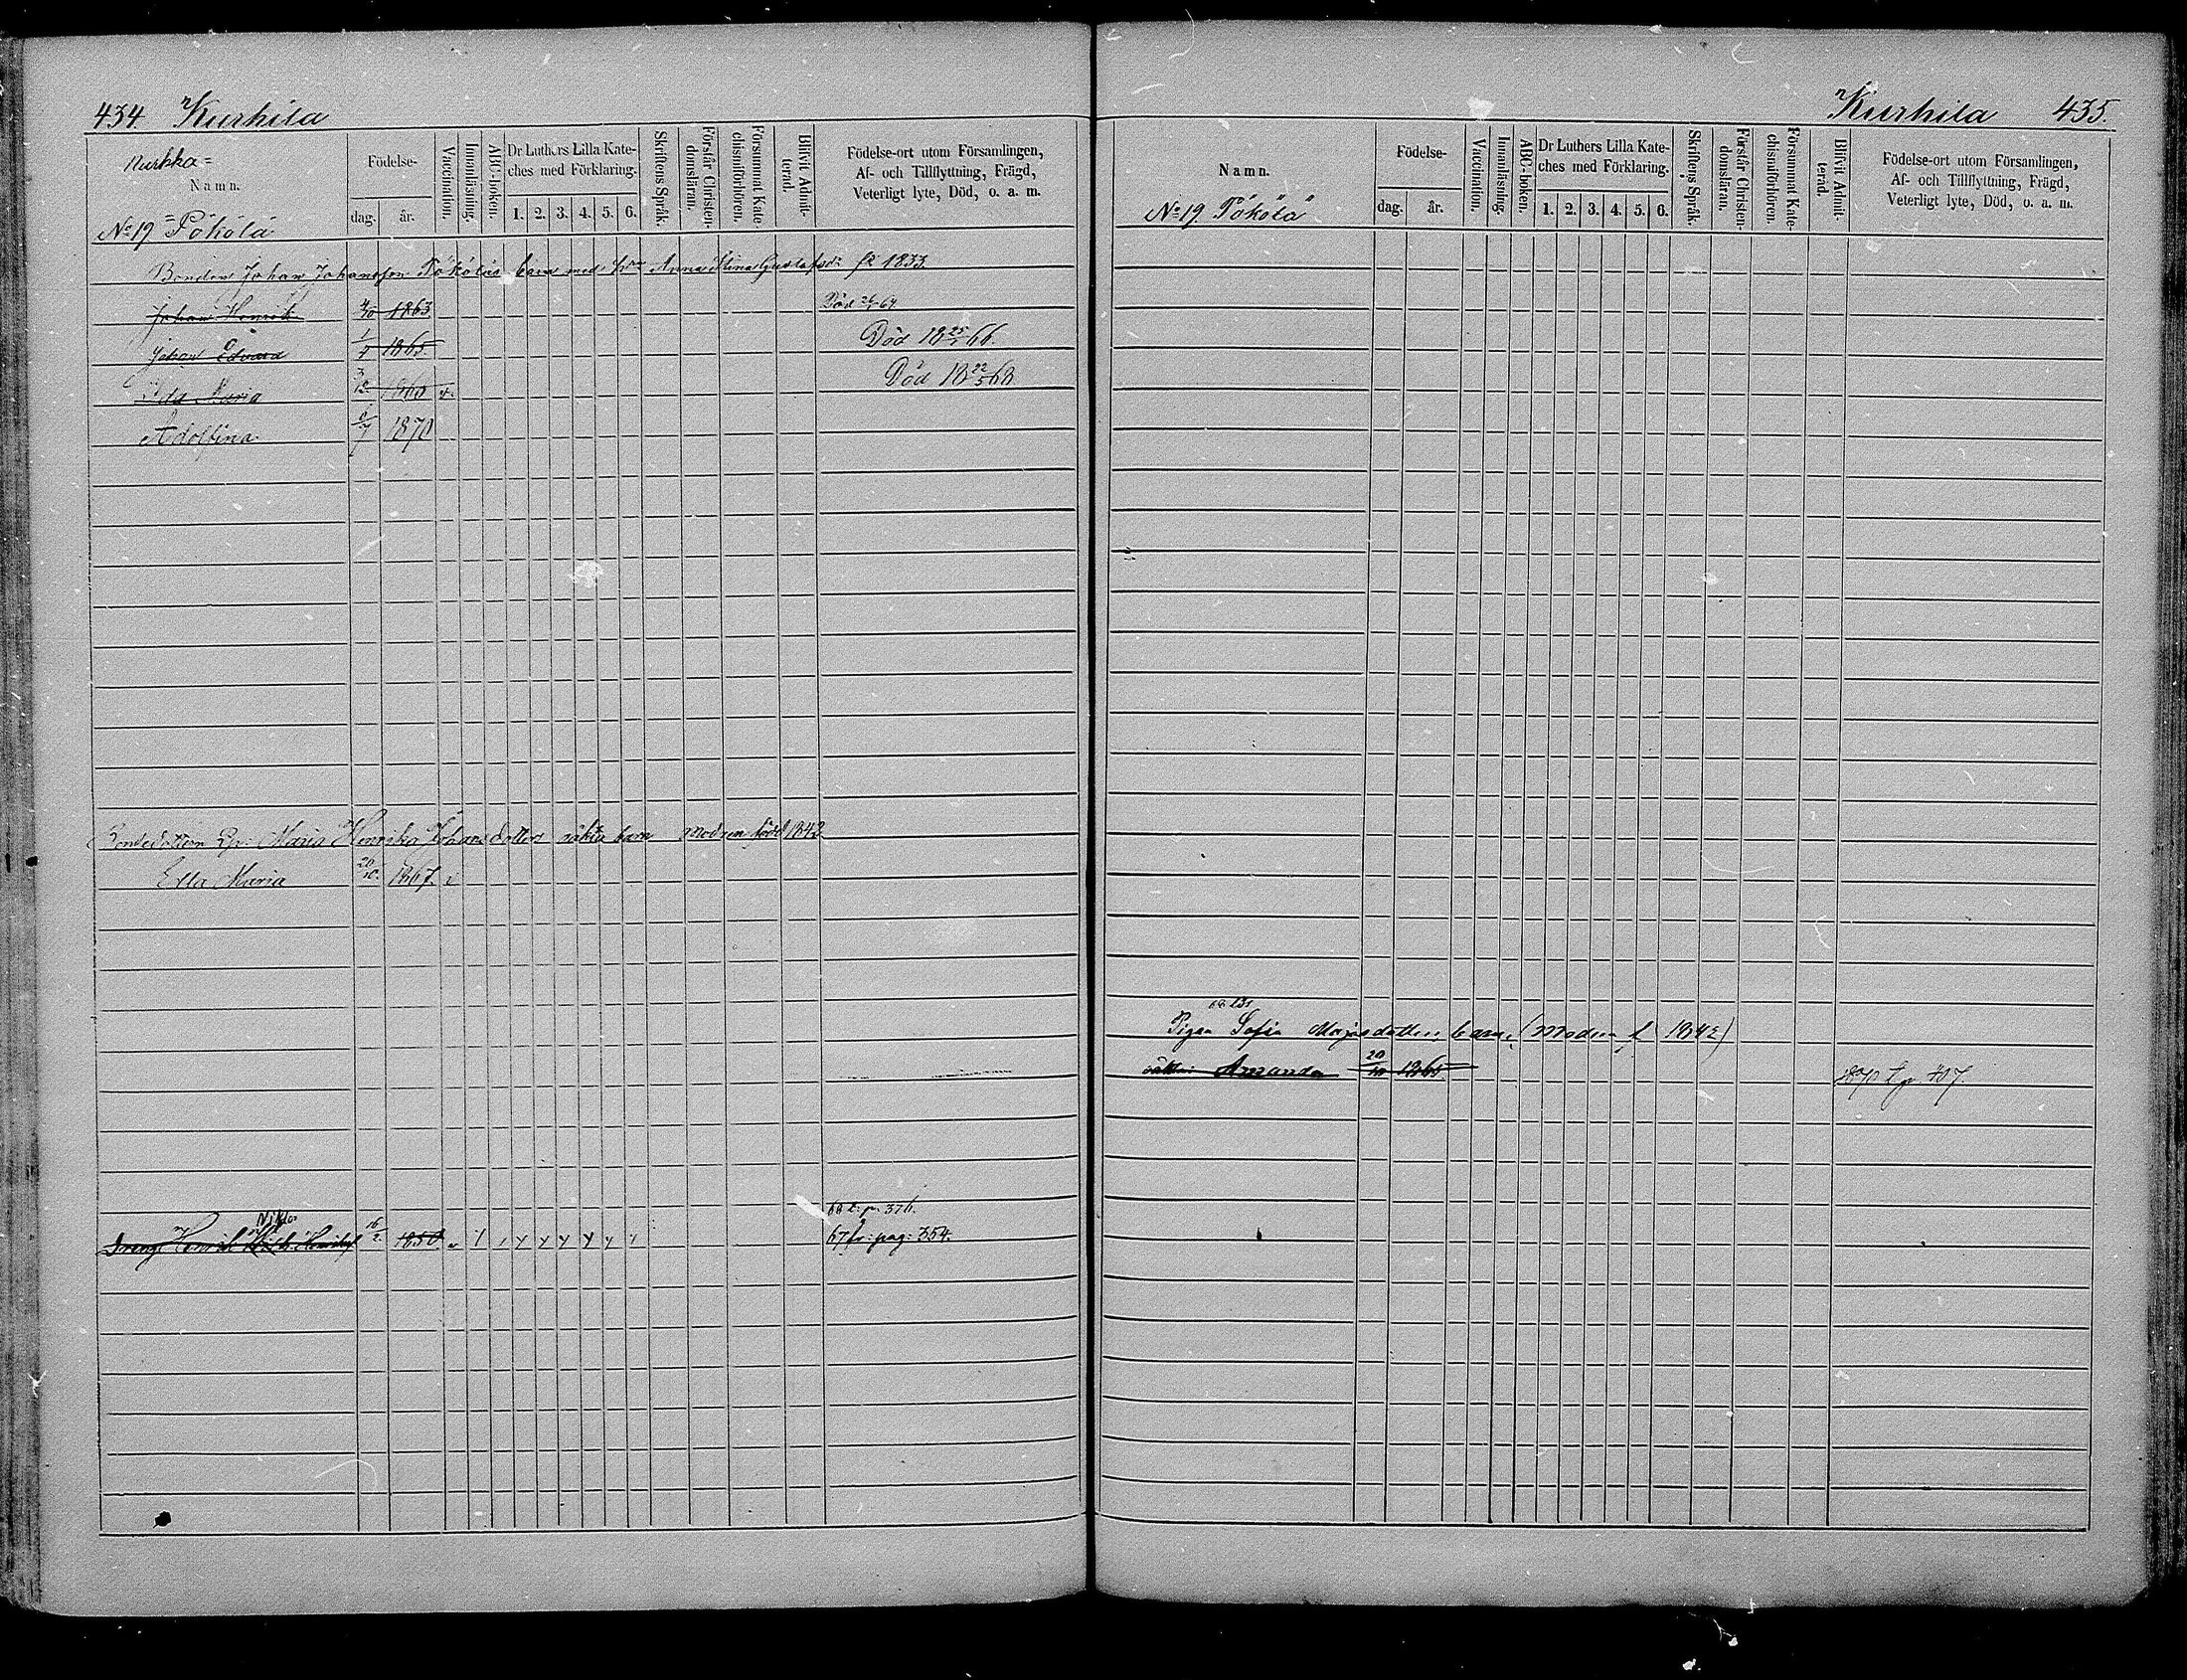 434. Kurhila
Nurkka=
Namn.
Födelse-
dag. år.
Vaccination.
Innanläsning.
ABC-boken.
Dr Luthers Lilla Kate-
ches med Förklaring.
1. 2. 3. 4. 5. 6.
Skriftens Språk.
Förstår Christen-
domsläran.
Försummat Kate-
chismiförhören.
Blifvit Admit-
terad.
Födelse-ort utom Församlingen,
Af- och Tillflyttning, Frägd,
Veterligt lyte, Död, o. a. m.
No 19 = Pökölä
Bonden Johan Johansson Pököläs barn med Anna Stina Gustafsdr 1833.
Johan Henrik 1863 Död
Johan Edvard 1/4 1865. Död 18 25/ 66.
Ida Maria 3/12 Död 18 22/5 68
Adolfina 1870
Bondedottern Maria Henrika Johansdotters oäkta barn modren född 1843
Maria 20/10. 1867.
68 t. p. 376.
Niklas
Dreng Henrik 16/2 1850 67 fr: pag: 354.
Kurhila 435.
Namn.
Födelse-
dag. år.
Vaccination.
Innanläsning.
ABC-boken.
Dr Luthers Lilla Kate-
ches med Förklaring.
1. 2. 3. 4. 5. 6.
Skriftens Språk.
Förstår Christen-
domsläran.
Försummat Kate-
chismiförhören.
Blifvit Admit-
terad.
Födelse-ort utom Församlingen,
Af- och Tillflyttning, Frägd,
Veterligt lyte, Död, o. a. m.
No 19. Pökölä
Pigan Sofia barn, (modren f. 1842)
oäkta: Amanda 20/10 1865 1870 t p 407.